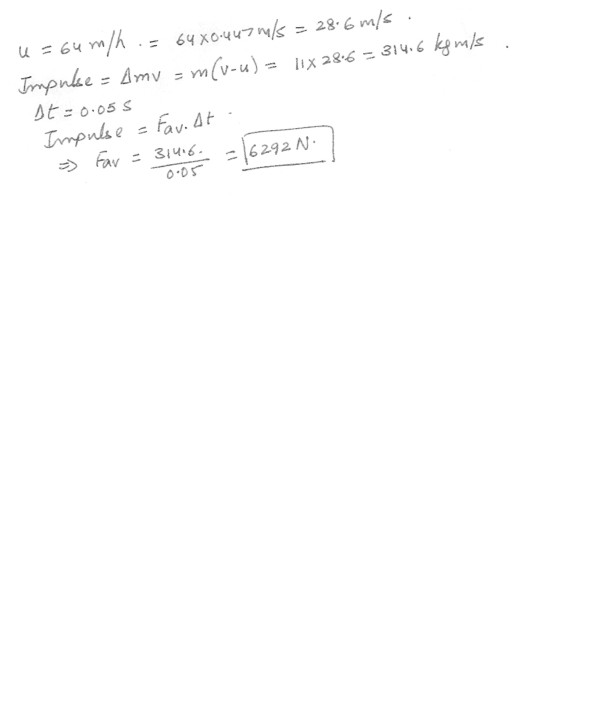 u = 64 m/h . = 64 x 0.447 m/s = 28.6 m/s .
Impulse = Δmv = m(v-u) = 11 x 28.6 = 314.6 kg m/s .
Δt = 0.05 s
Impulse = Fav. Δt .
⇒ Fav = 314.6. / 0.05 = 6292 N.